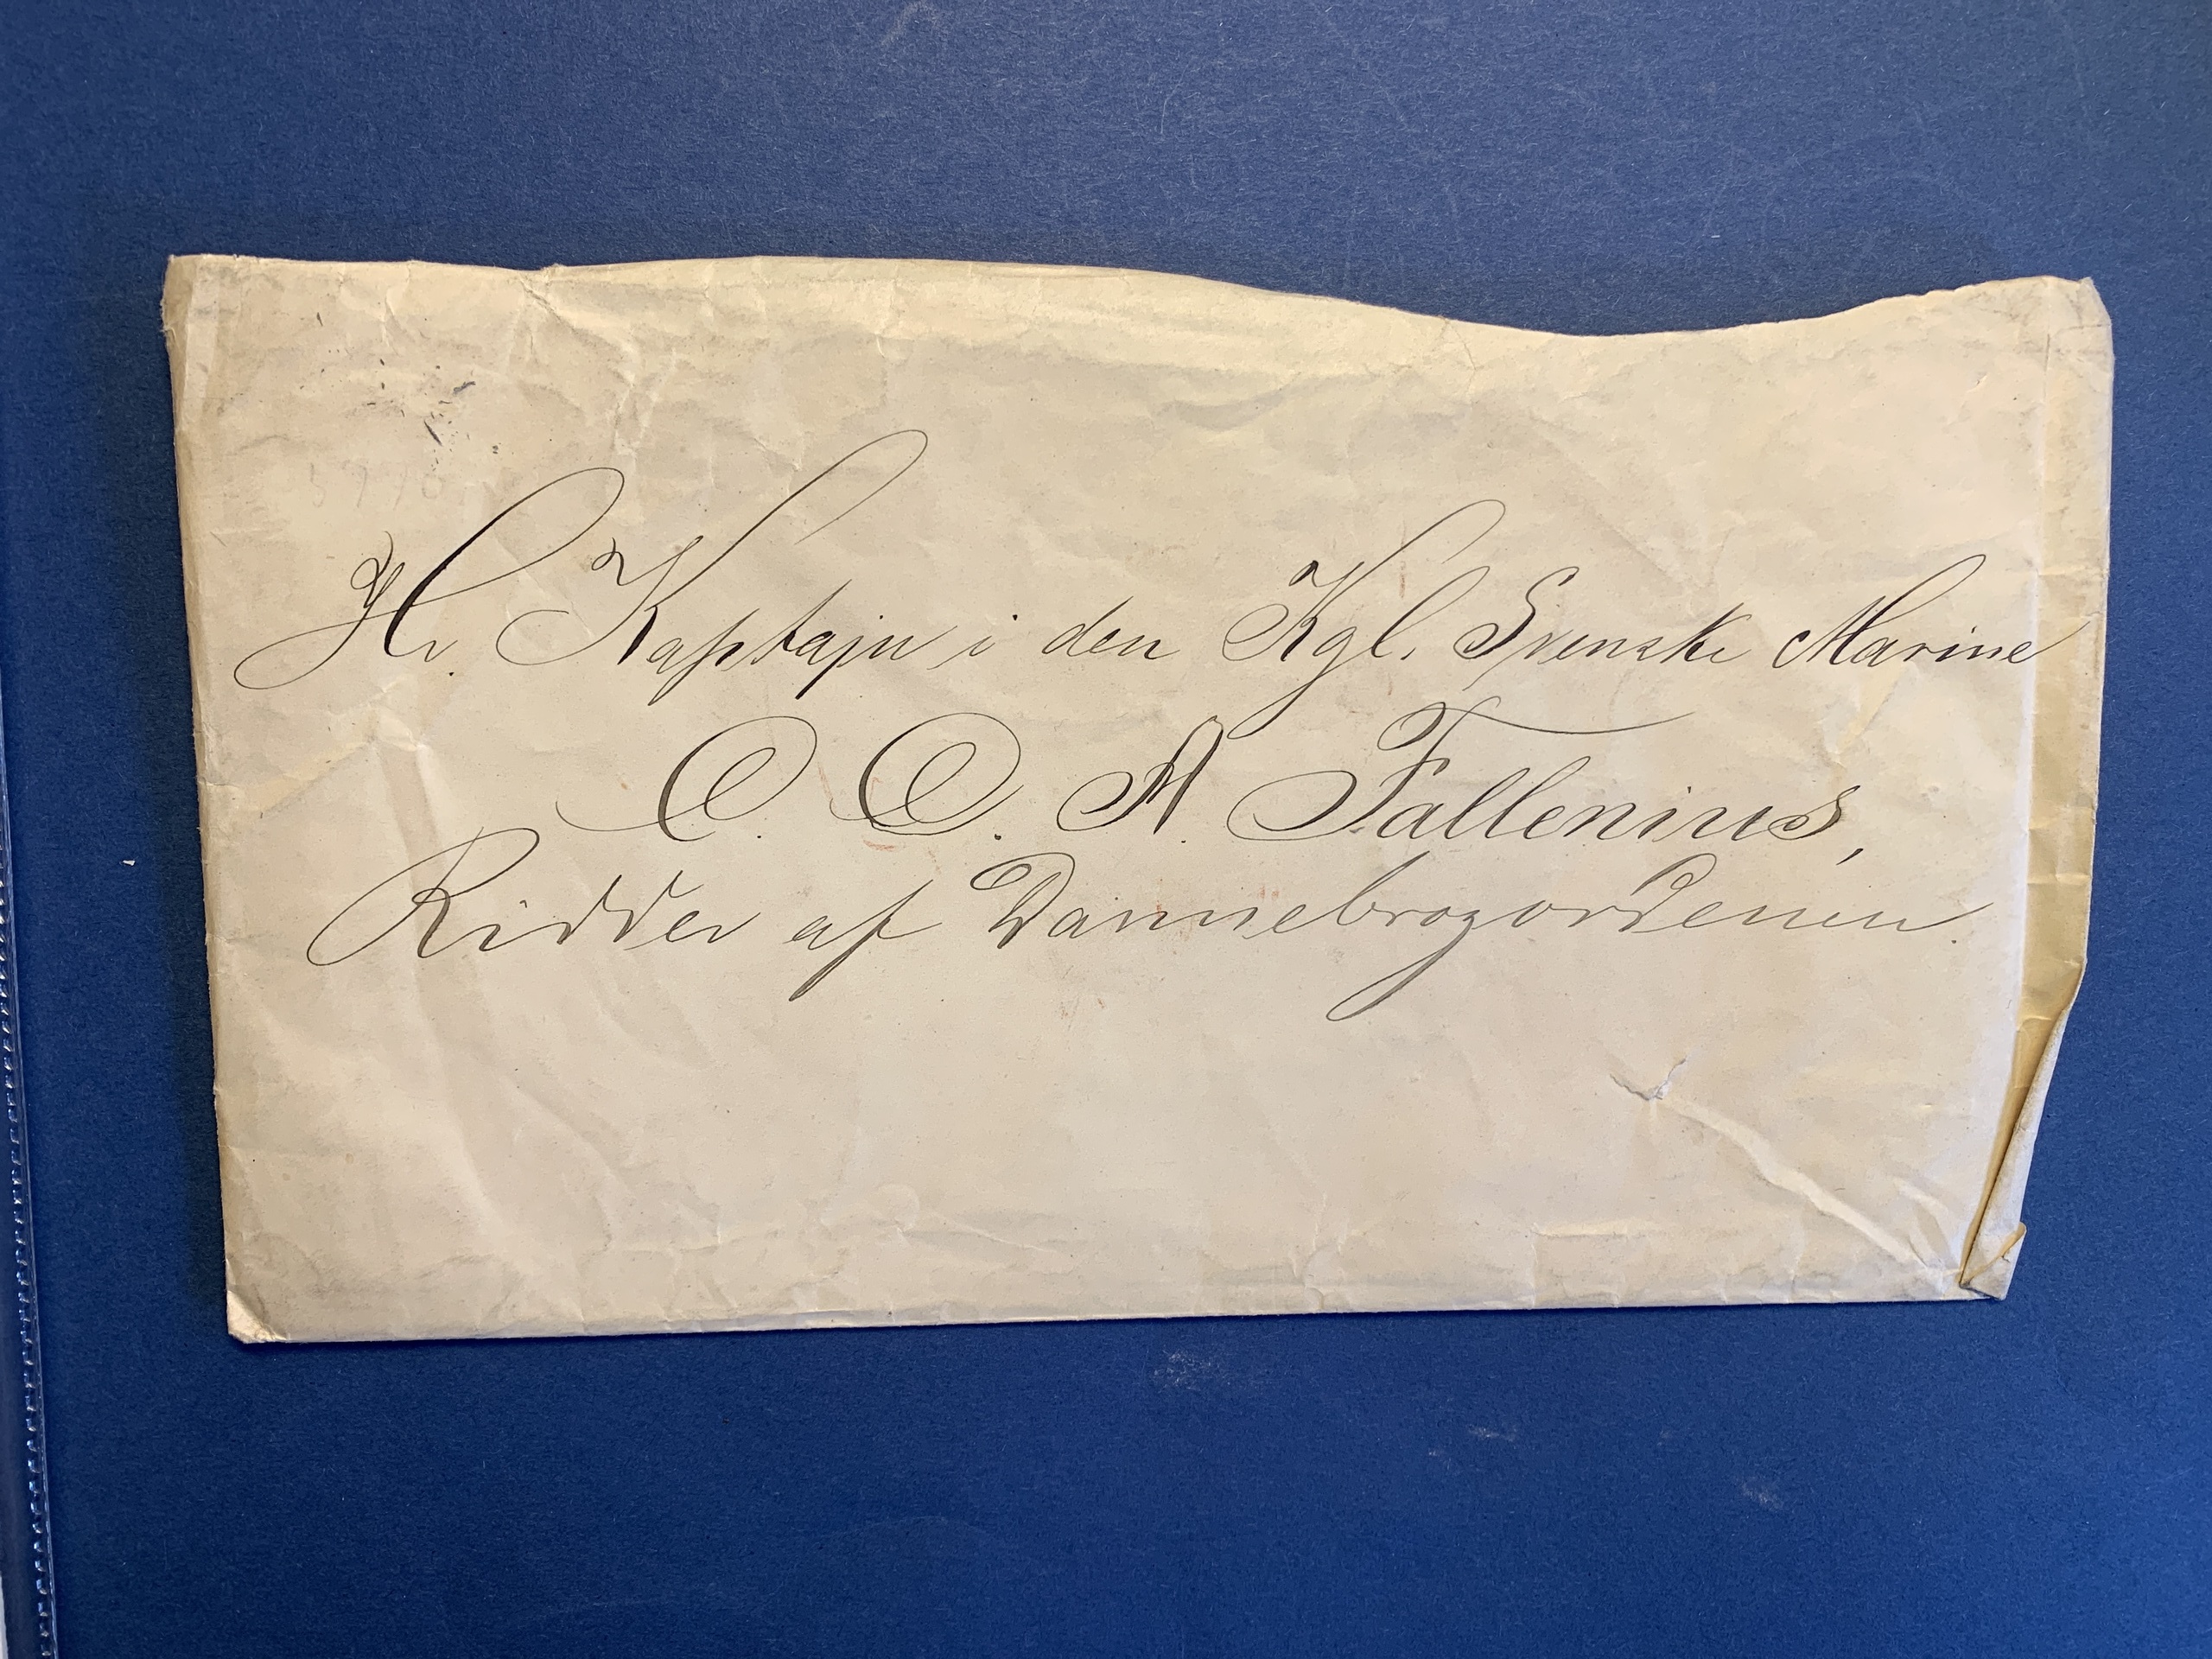 Hr. Kaptajn i den Kgl. Svenske Marine
C. C. A. Fallenius,
Ridder af Dannebrogordenen.